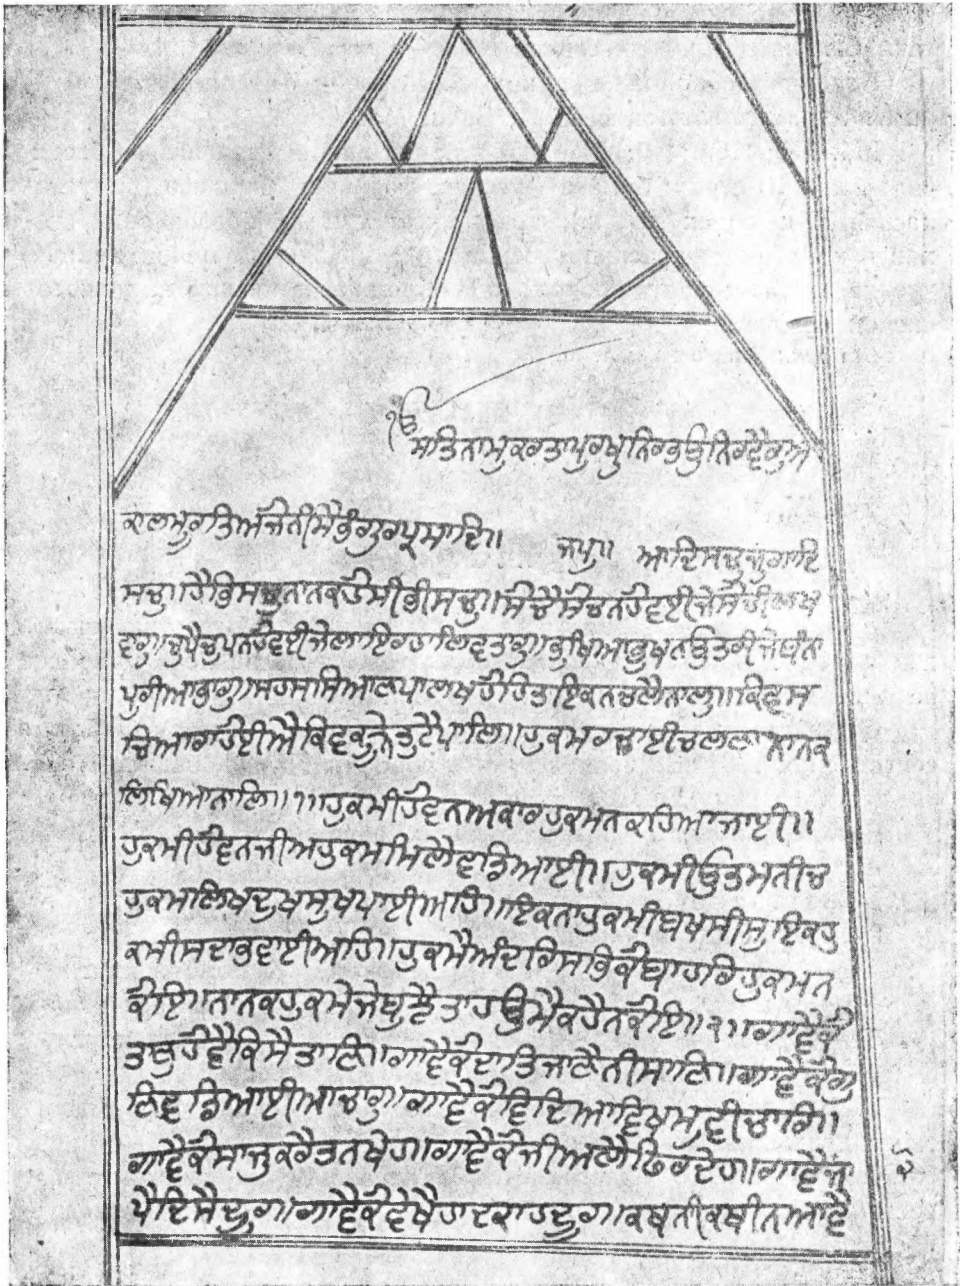 ੴ
ਸਤਿਨਾਮੁਕਰਤਾਪੁਰਖੁਨਿਰਭਉਨਿਰਵੈਰੁਅ
ਕਾਲਮੂਰਤਿਅਜੋਨੀਸੈਭੰਗੁਰਪ੍ਰਸਾਦਿ॥ ਜਪੁ॥ ਆਦਿਸਚੁਜੁਗਾਦਿ
ਸਚੁ॥ਹੈਭਿਸਚੁਨਾਨਕਹੋਸੀਭੀਸਚੁ॥ਸੋਚੈਸੋਚਨਹੋਵਈਜੇਸੋਚੀਲਖ
ਵਾਰ॥ਚੁਪੈਚੁਪਨਹੋਵਈਜੇਲਾਇਰਹਾਲਿਵਤਾਰ॥ਭੁਖਿਆਭੁਖਨਉਤਰੀਜੇਬੰਨਾ
ਪੁਰੀਆਭਾਰ॥ਸਹਸਸਿਆਣਪਾਲਖਹੋਹਿਤਇਕਨਚਲੈਨਾਲ॥ਕਿਵਸ
ਚਿਆਰਾਹੋਈਐਕਿਵਕੂੜੈਤੁਟੈਪਾਲਿ॥ਹੁਕਮਰਜਾਈਚਲਣਾਨਾਨਕ
ਲਿਖਿਆਨਾਲਿ॥੧॥ਹੁਕਮੀਹੋਵਨਿਆਕਾਰਹੁਕਮਨਕਹਿਆਜਾਈ॥
ਹੁਕਮੀਹੋਵਨਜੀਅਹੁਕਮਮਿਲੈਵਡਿਆਈ॥ਹੁਕਮੀਉਤਮਨੀਚ
ਹੁਕਮਲਿਖਦੁਖਸੁਖਪਾਈਅਹਿ॥ਇਕਨਾਹੁਕਮੀਬਖਸੀਸੁਇਕਹੁ
ਕਮੀਸਦਾਭਵਾਈਅਹਿ॥ਹੁਕਮੈਅੰਦਰਿਸਭਿਕੋਬਾਹਰਿਹੁਕਮਨ
ਕੋਇ॥ਨਾਨਕਹੁਕਮੇਜੇਬੁਝੈਤਾਹਉਮੈਕਹੈਨਕੋਇ॥੨॥ਗਾਵੈਕੋ
ਤਾਣੁਹੋਵੈਕਿਸੈਤਾਣਿ॥ਗਾਵੈਕੋਦਾਤਿਜਾਣੈਨੀਸਾਣਿ॥ਗਾਵੈਕੋਗੁ
ਣਿਵਡਿਆਈਆਚਾਰ॥ਗਾਵੈਕੋਵਿਦਿਆਵਿਖਮੁਵੀਚਾਰਿ॥
ਗਾਵੈਕੋਸਾਜੁਕਰੈਤਨਖੇਹ॥ਗਾਵੈਕੋਜੀਅਲੈਫਿਰਦੇਹ॥ਗਾਵੈਜਾ
ਪੈਦਿਸੈਦੂਰ॥ਗਾਵੈਕੋਵੇਖੈਹਾਦਰਾਹਦੂਰ॥ਕਥਨੀਕਥੀਨਆਵੈ